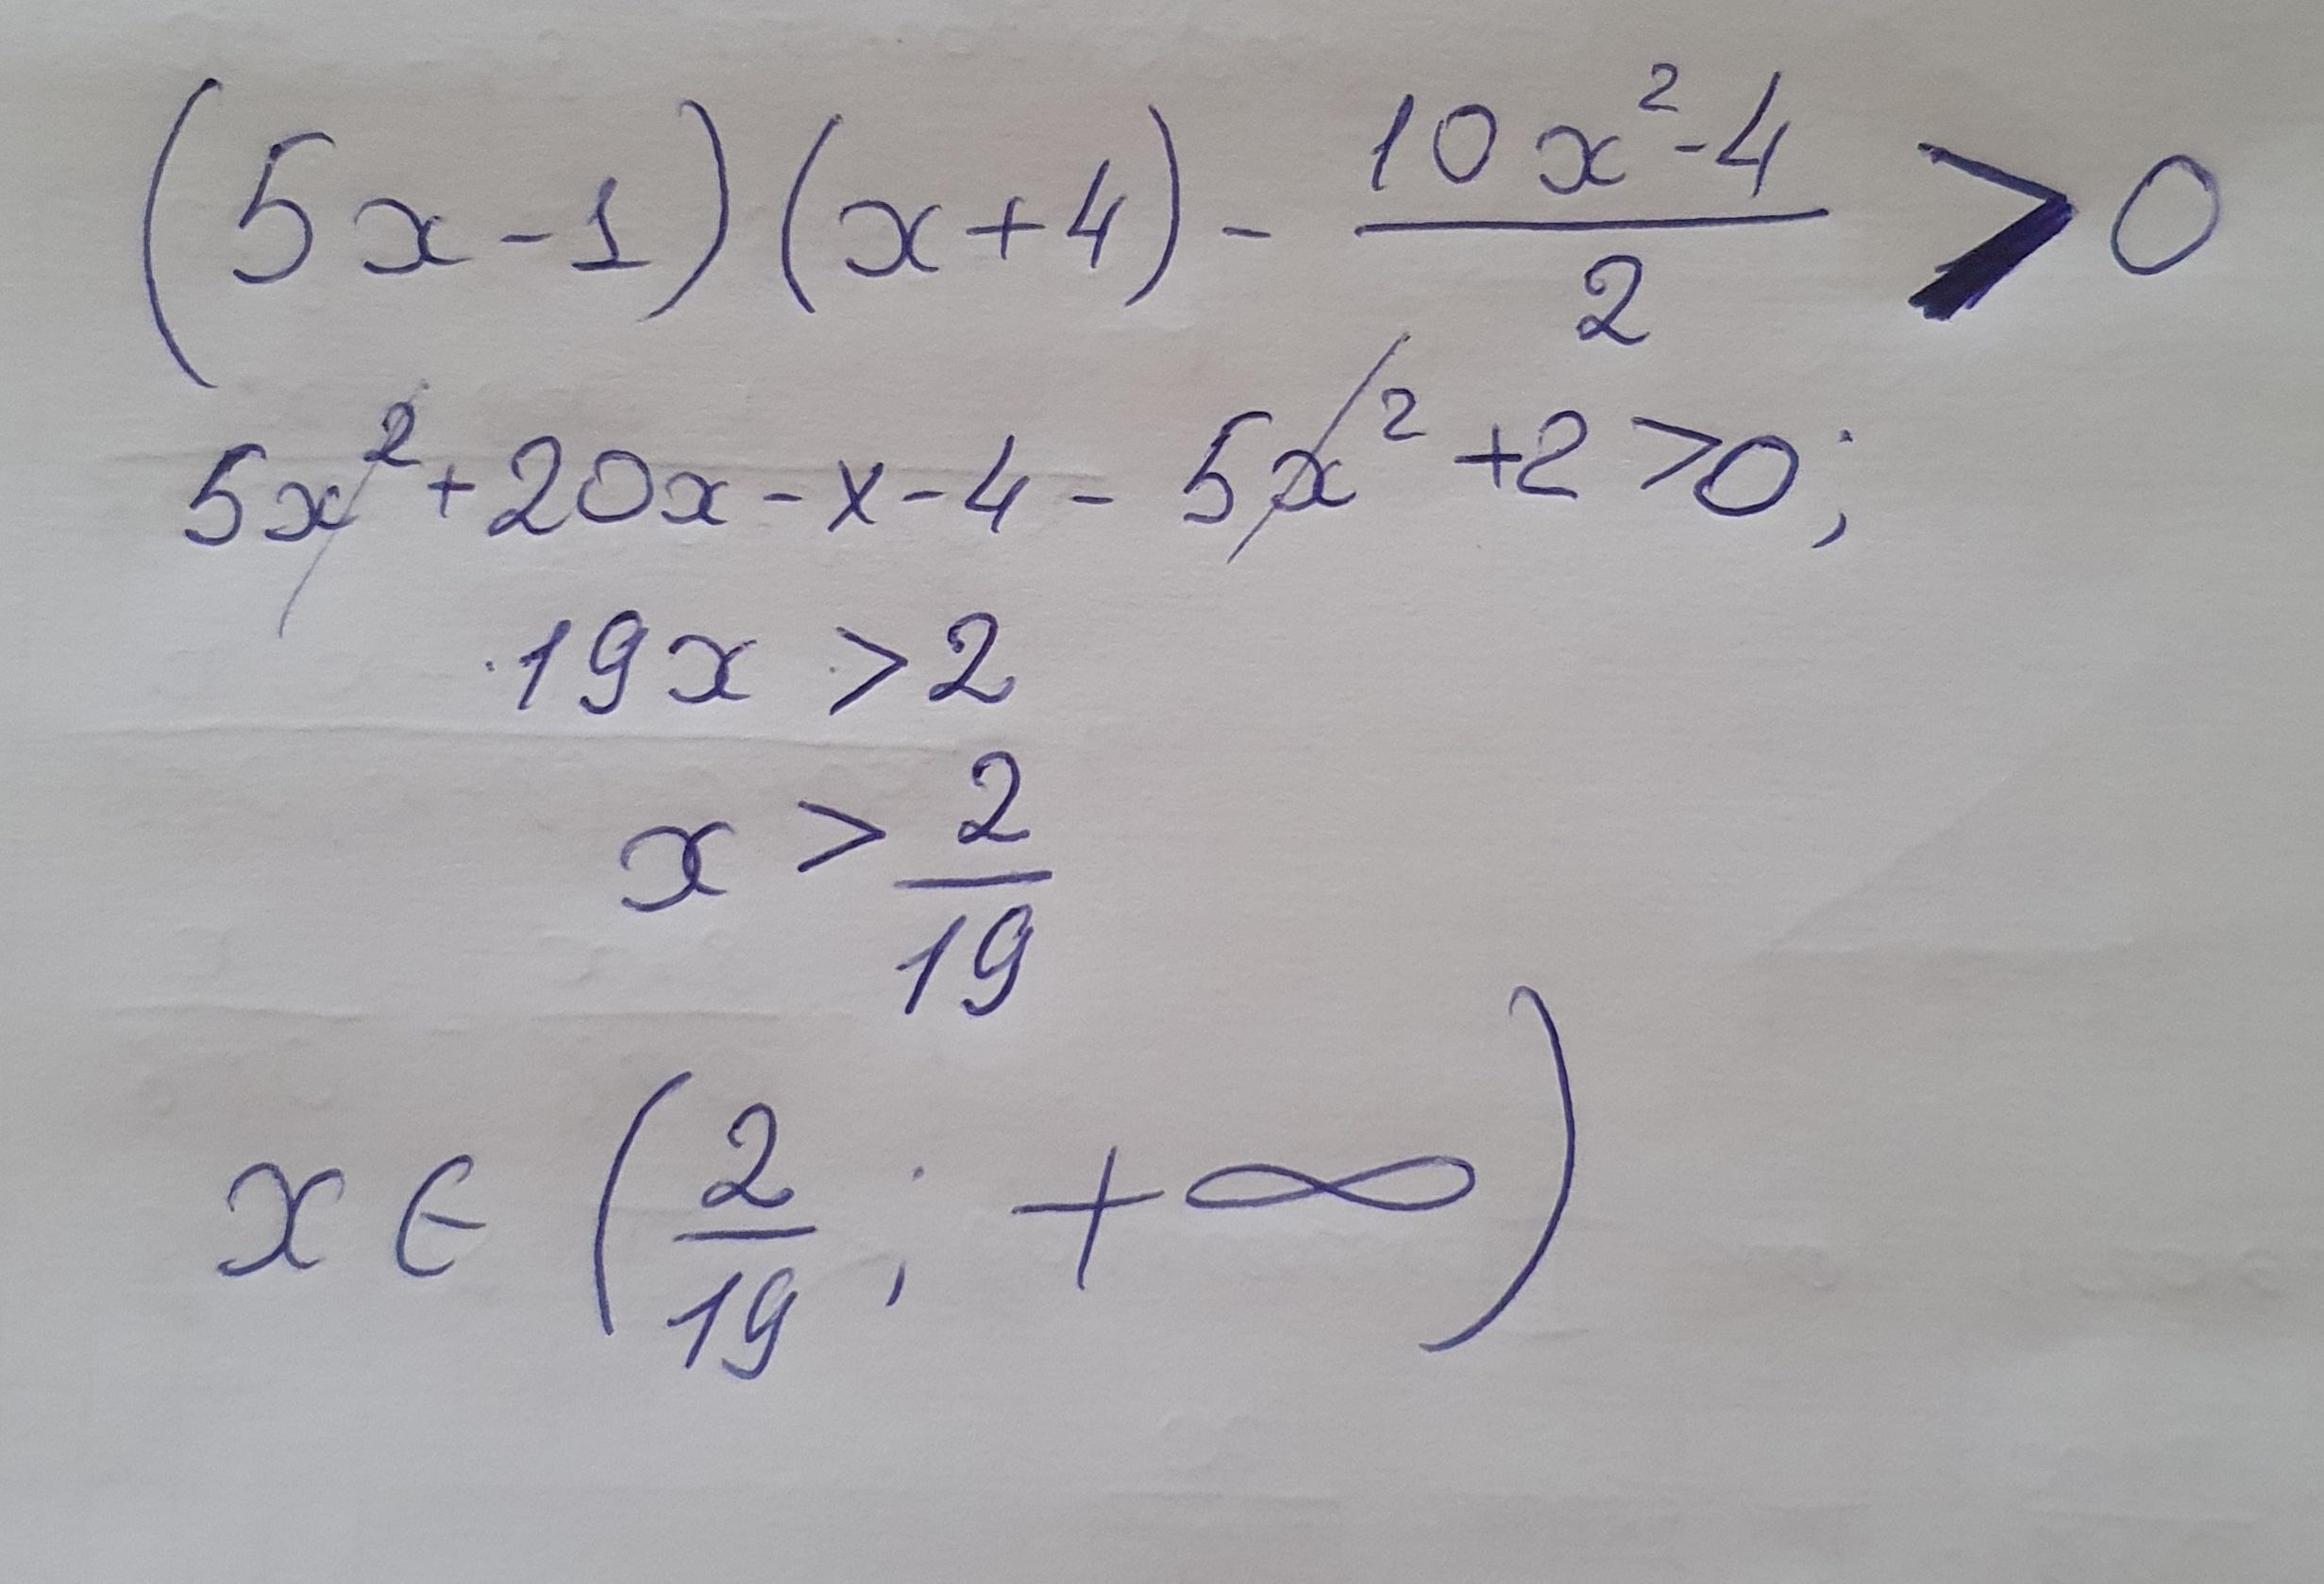 (5x-1)(x+4) - \frac{10x^2-4}{2} > 0
5x^2+20x-x-4-5x^2+2>0;
19x>2
x>\frac{2}{19}
x∈(\frac{2}{19}; +∞)